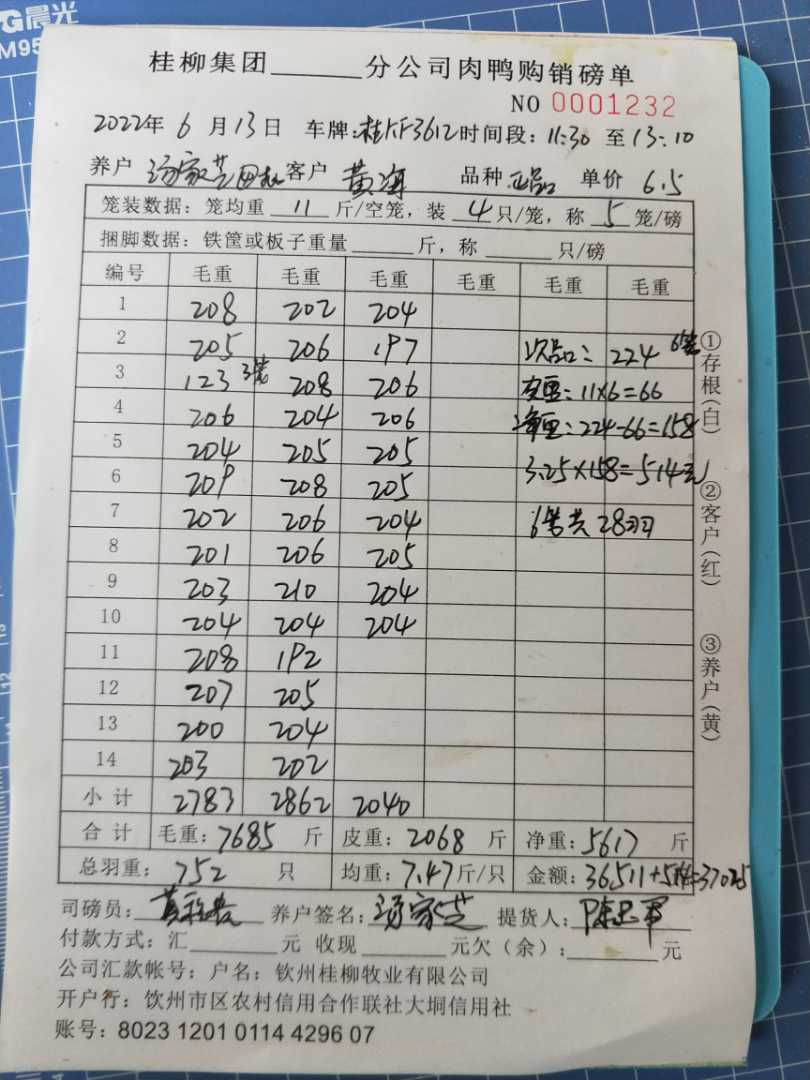 晨光
M95
桂柳集团______分公司肉鸭购销磅单
NO 0001232
2022年 6 月 13日 车牌:桂KF3612 时间段: 11:30 至 13:10
养户 汤家芝 客户 黄海 品种 正品 单价 6.5
笼装数据：笼均重 11 斤/空笼，装 4 只/笼，称 5 笼/磅
捆脚数据：铁筐或板子重量______斤，称______只/磅
编号 毛重 毛重 毛重 毛重 毛重 毛重
1 208 202 204
2 205 206 197 次品: 224 6笼
3 123 3笼 208 206 皮重: 11×6=66
4 206 204 206 净重: 224-66=158
5 204 205 205 3.25×158=514元
6 209 208 205
7 202 206 204 6笼共28羽
8 201 206 205
9 203 210 204
10 204 204 204
11 208 192
12 207 205
13 200 204
14 203 202
小计 2783 2862 2040
合计 毛重: 7685 斤 皮重: 2068 斤 净重: 5617 斤
总羽重: 752 只 均重: 7.47斤/只 金额: 36511+514=37025
司磅员: 养户签名: 汤家芝 提货人: 陈忠军
付款方式: 汇______元 收现______元欠（余）:______元
公司汇款帐号: 户名: 钦州桂柳牧业有限公司
开户行: 饮州市区农村信用合作联社大垌信用社
账号: 8023 1201 0114 4296 07
①存根(白)
②客户(红)
③养户(黄)